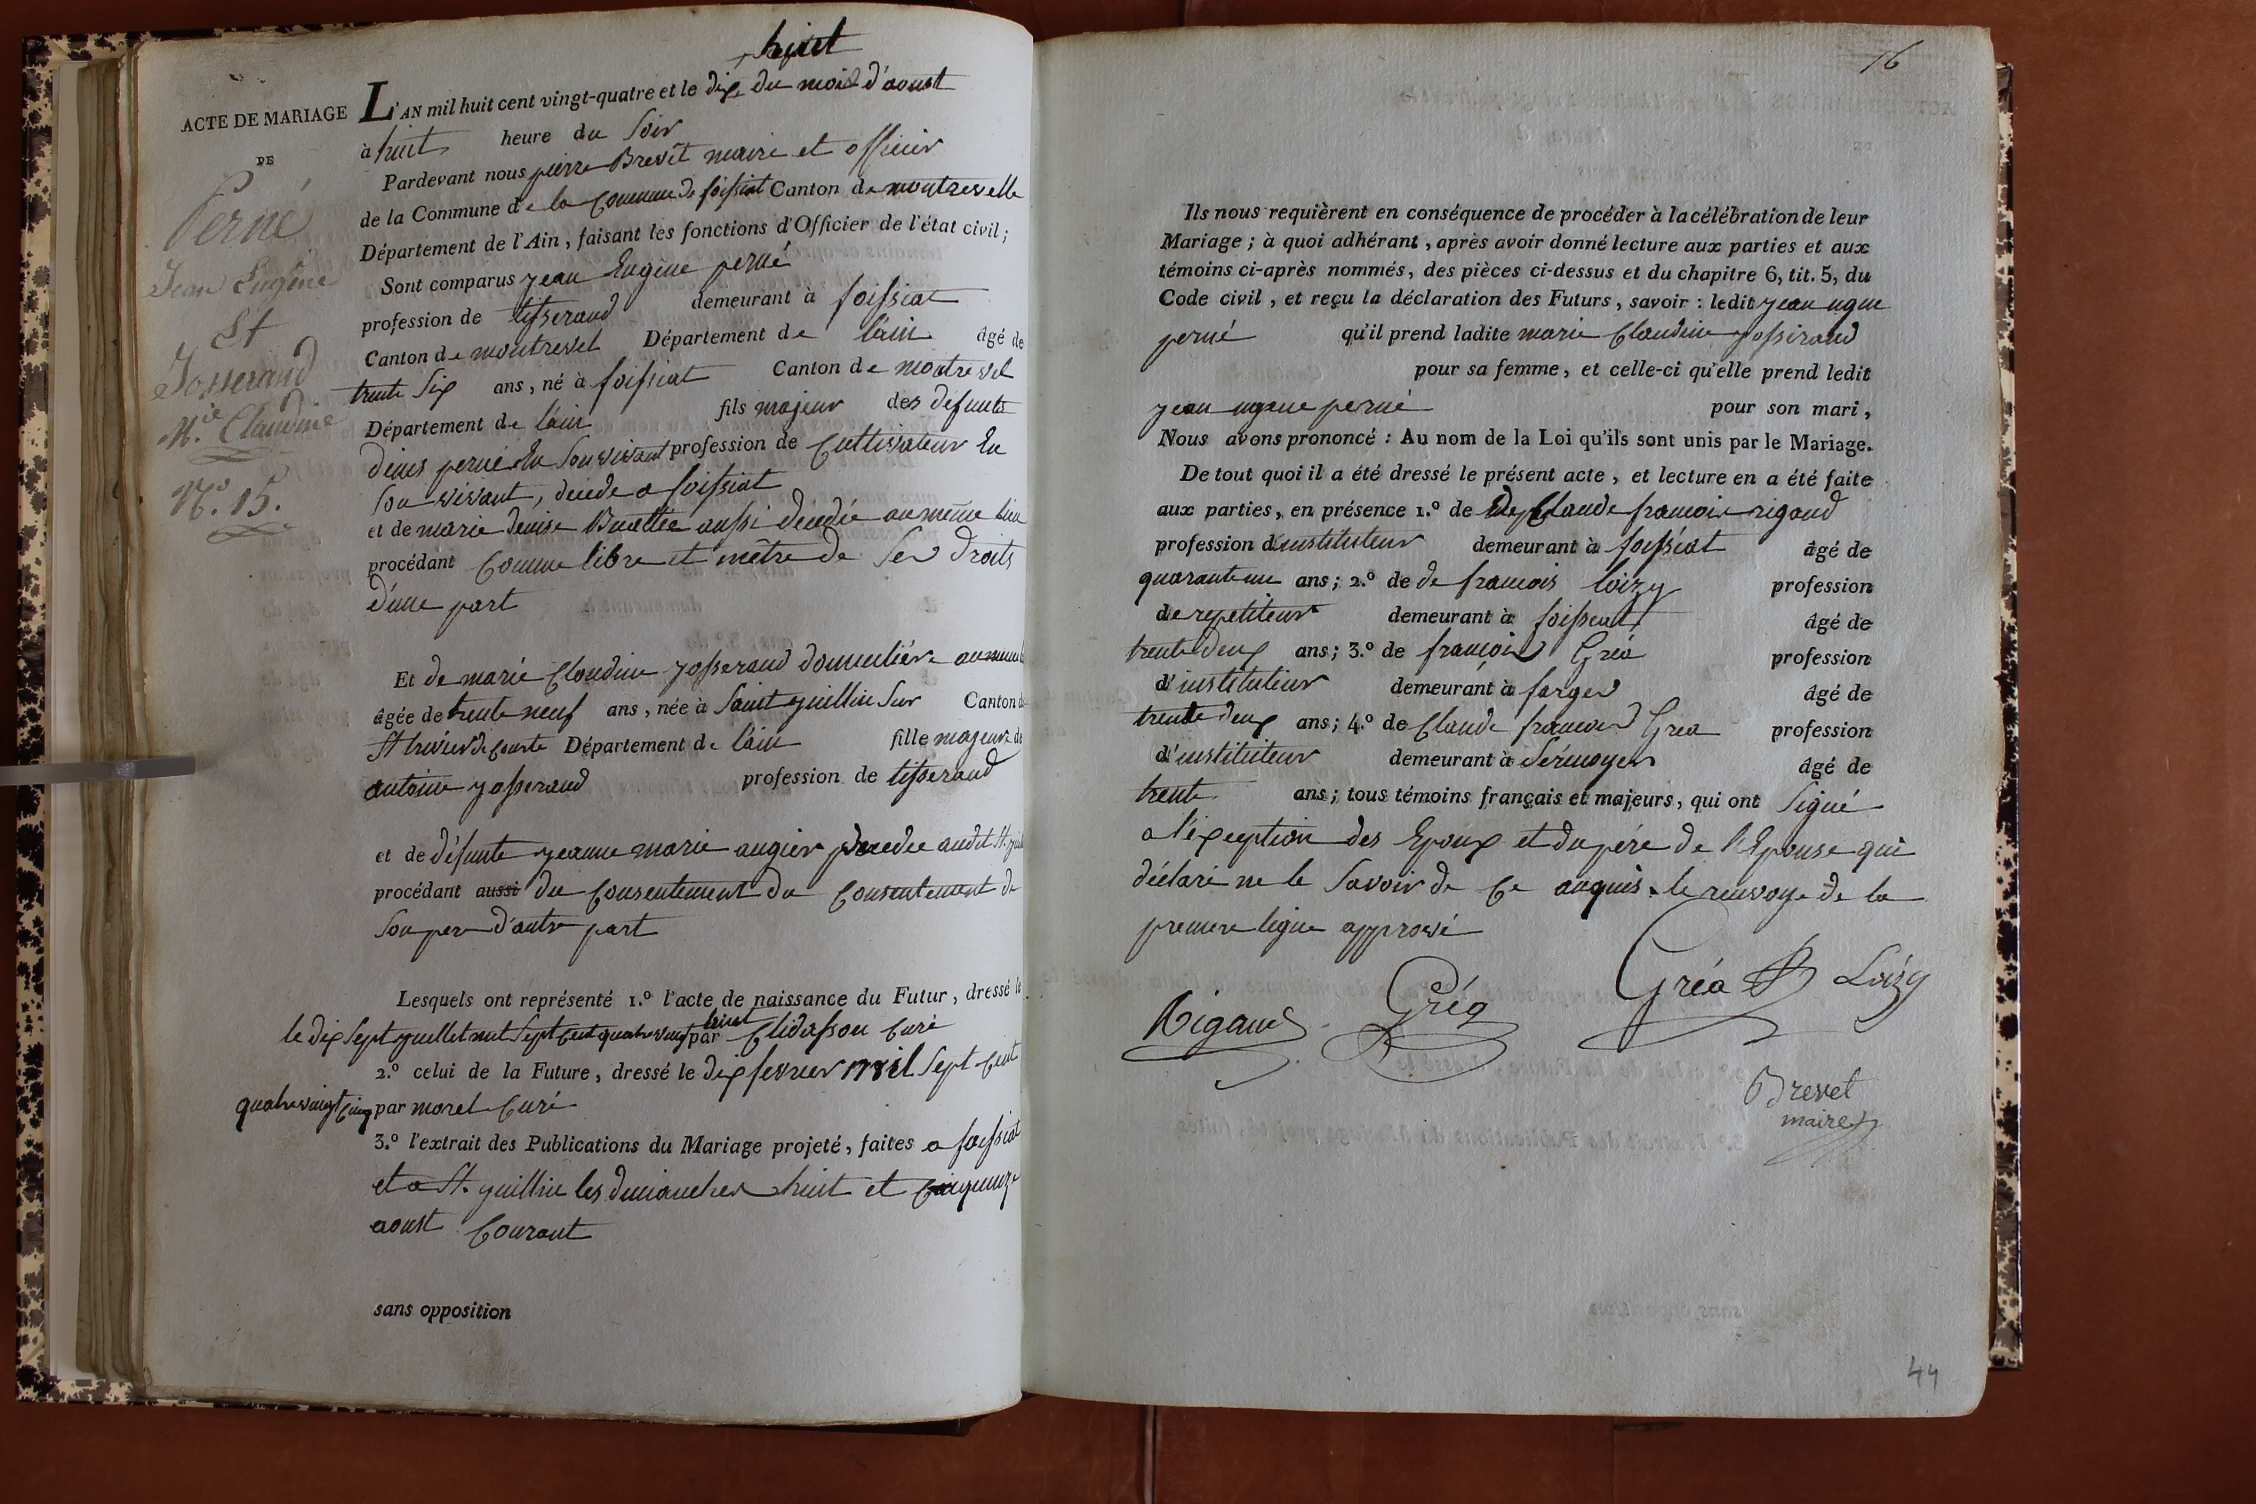 huit
ACTE DE MARIAGE
DE
Perné
Jean Eugêne
Et
Josserand
M.ie Claudine
N.o 15.
L'AN mil huit cent vingt-quatre et le dix du mois d'aoust
à huit heure du soir
Pardevant nous pierre Brevêt maire et officier
de la Commune de la commune de foissiat Canton de montrevelle
Département de l'Ain, faisant les fonctions d'Officier de l'état civil;
Sont comparus jean Eugêne perné
profession de tisserand demeurant à foissiat
Canton de montrevel Département de l'ain âgé de
trente six ans, né à foissiat Canton de montrevel
Département de l'ain fils majeur des defunts
denis perné En son vivant profession de Cultivateur En
son vivant, décédé a foissiat
et de marie denise Buattée aussi décédée au même lieu
procédant comme libre et mêtre de ses droits
d'une part
Et de marie Claudine josserand domicilière au même
âgée de trente neuf ans, née à saint juillin sur Canton de
St trivier de courte Département de l'ain fille majeure de
antoine josserand profession de tisserand
et de défunte jeanne marie augier décédée audit St. juil
procédant aussi du consentement du consentement de
son per d'autre part
Lesquels ont représenté 1.º l'acte de naissance du Futur, dressé le
huit
le dix sept juillet mil sept cent quatre vingt par Clidasson curé
2.º celui de la Future, dressé le dix fevrier mil sept cent
quatrevingt cinq par morel curé
3.º l'extrait des Publications du Mariage projeté, faites a foissiat
et a St. juillin les dimanches huit et quinze
aoust courant
sans opposition
16
Ils nous requièrent en conséquence de procéder à la célébration de leur
Mariage; à quoi adhérant, après avoir donné lecture aux parties et aux
témoins ci-après nommés, des pièces ci-dessus et du chapitre 6, tit. 5, du
Code civil, et reçu la déclaration des Futurs, savoir: ledit jean ugene
perné qu'il prend ladite marie Claudine josserand
pour sa femme, et celle-ci qu'elle prend ledit
jean ugene perné pour son mari,
Nous avons prononcé: Au nom de la Loi qu'ils sont unis par le Mariage.
De tout quoi il a été dressé le présent acte, et lecture en a été faite
aux parties, en présence 1.º de Claude francois rigaud
profession d'instituteur demeurant à foissiat âgé de
quarante un ans; 2.º de de francois loizy profession
de repetiteur demeurant à foissiat âgé de
trente deux ans; 3.º de françois Gréa profession
d'instituteur demeurant à farges âgé de
trente deux ans; 4.º de Claude francois Grea profession
d'instituteur demeurant à Sérmoyer âgé de
trente ans; tous témoins français et majeurs, qui ont signé
a l'exeption des Epoux et du pére de l'Epouse qui
déclaré ne le savoir de ce anquis. le renvoye de la
premiere ligne approuvé
Rigaud Gréa Gréa Loizy
Brevet
maire
44